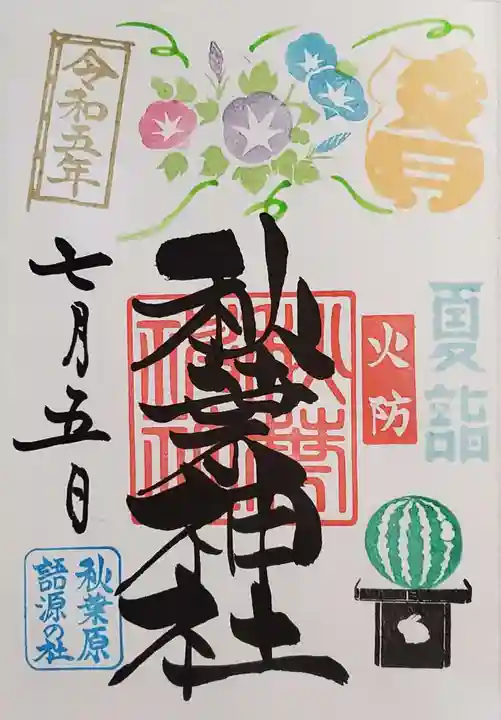 文月
夏詣
火防
秋葉神社
秋葉神社
令和五年
七月五日
秋葉原
語源の社